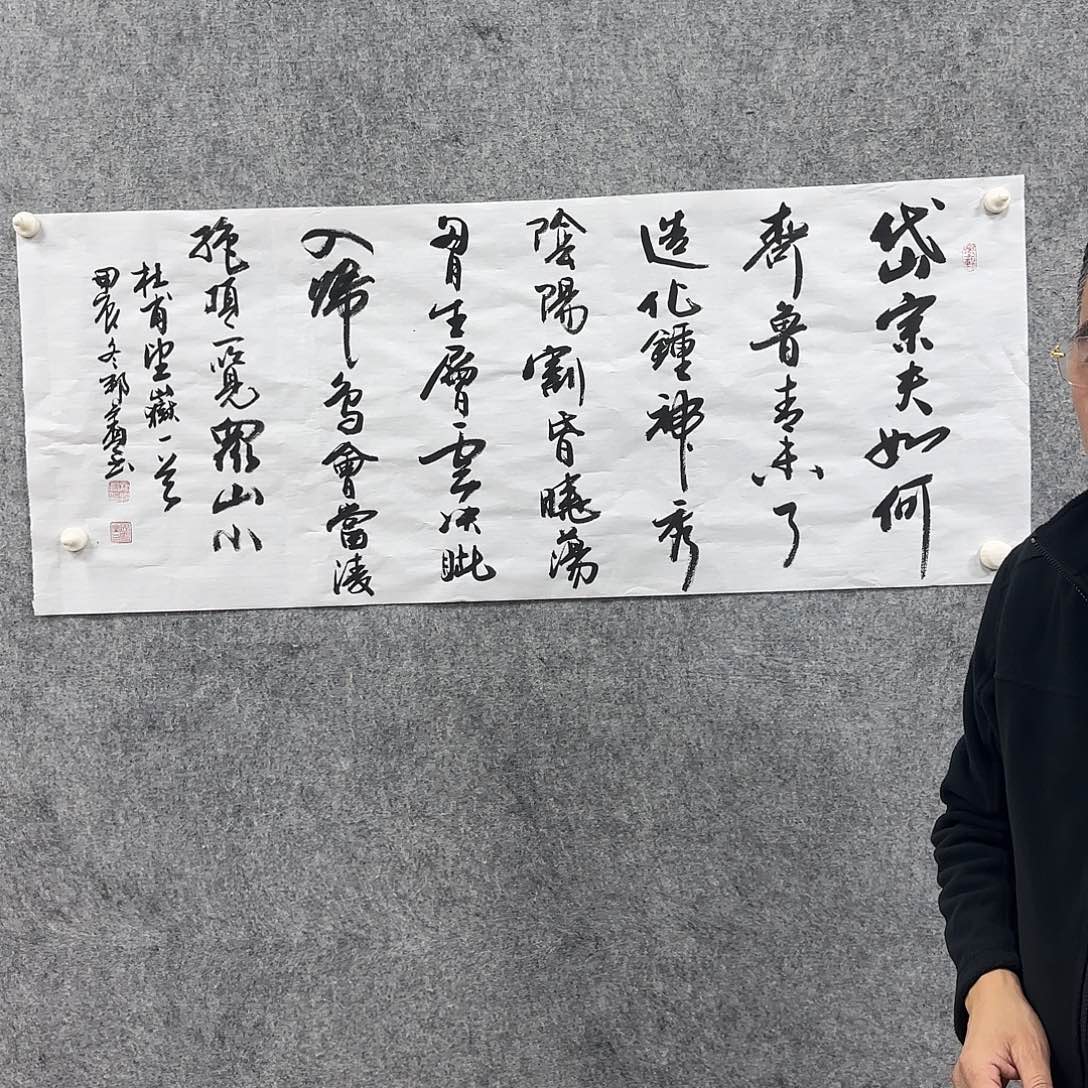 岱宗夫如何
齊魯青未了
造化鍾神秀
陰陽割昏曉蕩
胷生層雲決眦
入歸鳥會當淩
絶頂一覽眾山小
杜甫望嶽一首
甲辰冬